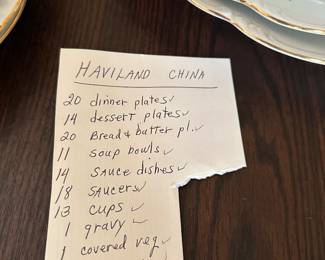 HAVILAND CHINA
20 dinner plates ✓
14 dessert plates ✓
20 Bread & butter pl. ✓
11 soup bowls ✓
14 sauce dishes ✓
18 saucers ✓
13 cups ✓
1 gravy ✓
1 covered veg ✓